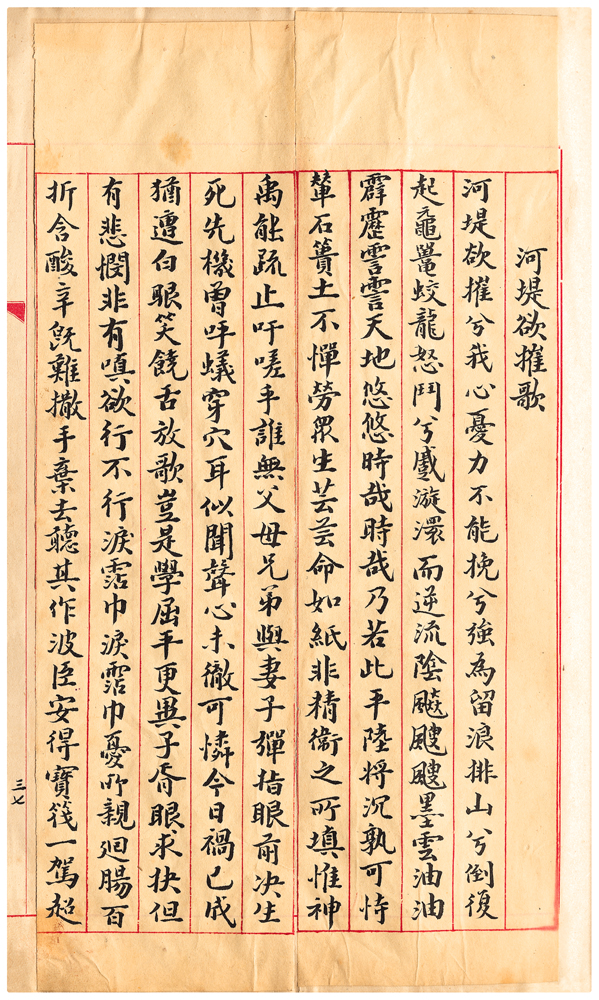 河堤欲摧歌
河堤欲摧兮我心憂力不能挽兮強為留浪排山兮倒復
起黿鼉蛟龍怒鬥兮蹙漩澴而逆流陰飈颼颼墨雲油油
霹靂霅霅天地悠悠時哉時哉乃若此平陸將沉孰可恃
輦石簣土不憚勞眾生芸芸命如紙非精衛之所填惟神
禹能疏止吁嗟乎誰無父母兄弟與妻子彈指眼前決生
死先機曾吁蟻穿穴耳似聞聲心未徹可憐今日禍已成
猶遭白眼笑饒舌放歌豈是學屈平更異子胥眼求抉但
有悲憫非有嗔欲行不行淚霑巾淚霑巾憂所親迴腸百
折含酸辛既難撒手棄去聽其作波臣安得寶筏一駕超
三七